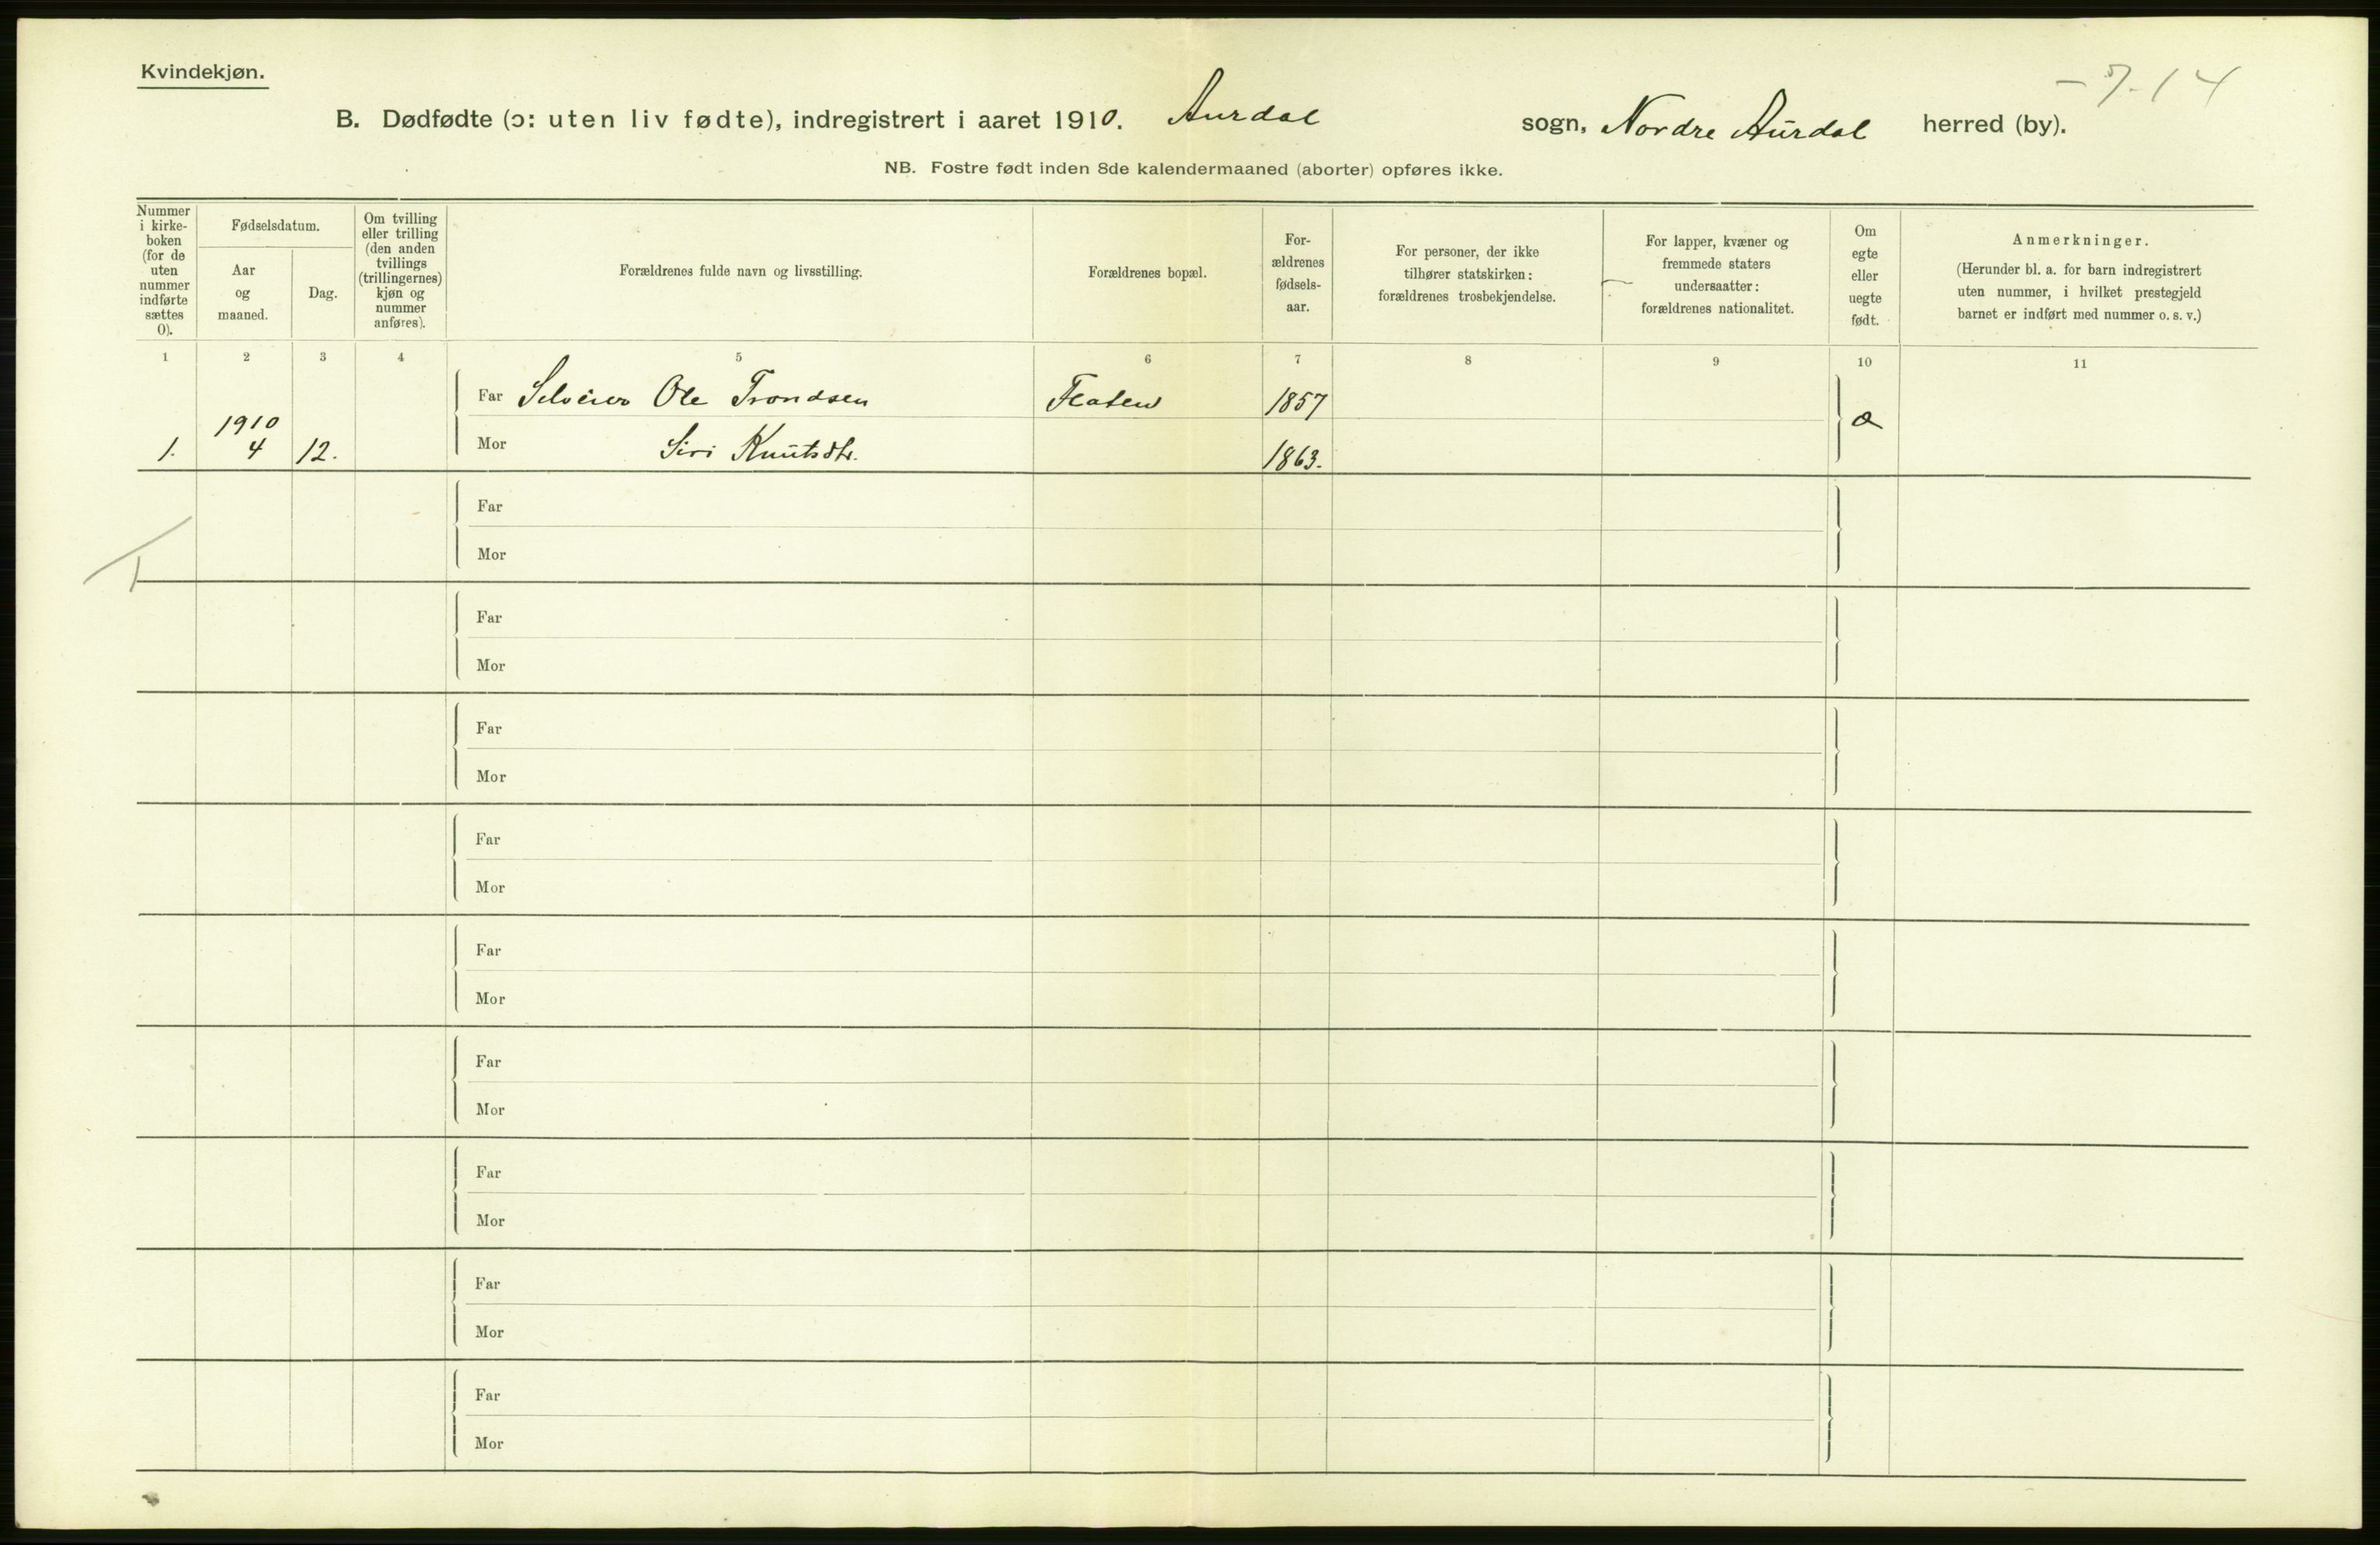 Kvindekjøn.
- 7-14
B. Dødfødte (ɔ: uten liv fødte), indregistrert i aaret 1910. Aurdal sogn, Nordre Aurdal herred (by).
NB. Fostre født inden 8de kalendermaaned (aborter) opføres ikke.
Nummer
i kirke-
boken
(for de
uten
nummer
indførte
sættes
0).
Fødselsdatum.
Aar
og
maaned.
Dag.
Om tvilling
eller trilling
(den anden
tvillings
(trillingernes)
kjøn og
nummer
anføres).
Forældrenes fulde navn og livsstilling.
Forældrenes bopæl.
For-
ældrenes
fødsels-
aar.
For personer, der ikke
tilhører statskirken:
forældrenes trosbekjendelse.
For lapper, kvæner og
fremmede staters
undersaatter:
forældrenes nationalitet.
Om
egte
eller
uegte
født.
Anmerkninger.
(Herunder bl. a. for barn indregistrert
uten nummer, i hvilket prestegjeld
barnet er indført med nummer o. s. v.)
1 2 3 4 5 6 7 8 9 10 11
Far Selveier Ole Trondsen Flaten 1857
1910 æ
1. 4 12. Mor Siri Knutsdtr. 1863.
Far
Mor
1
Far
Mor
Far
Mor
Far
Mor
Far
Mor
Far
Mor
Far
Mor
Far
Mor
Far
Mor